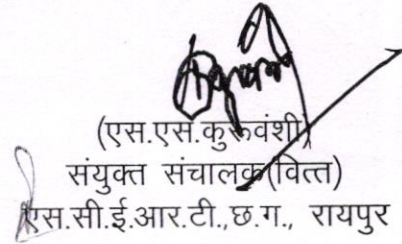 (एस.एस.कुरूवंशी)
संयुक्त संचालक(वित्त)
एस.सी.ई.आर.टी.,छ.ग., रायपुर